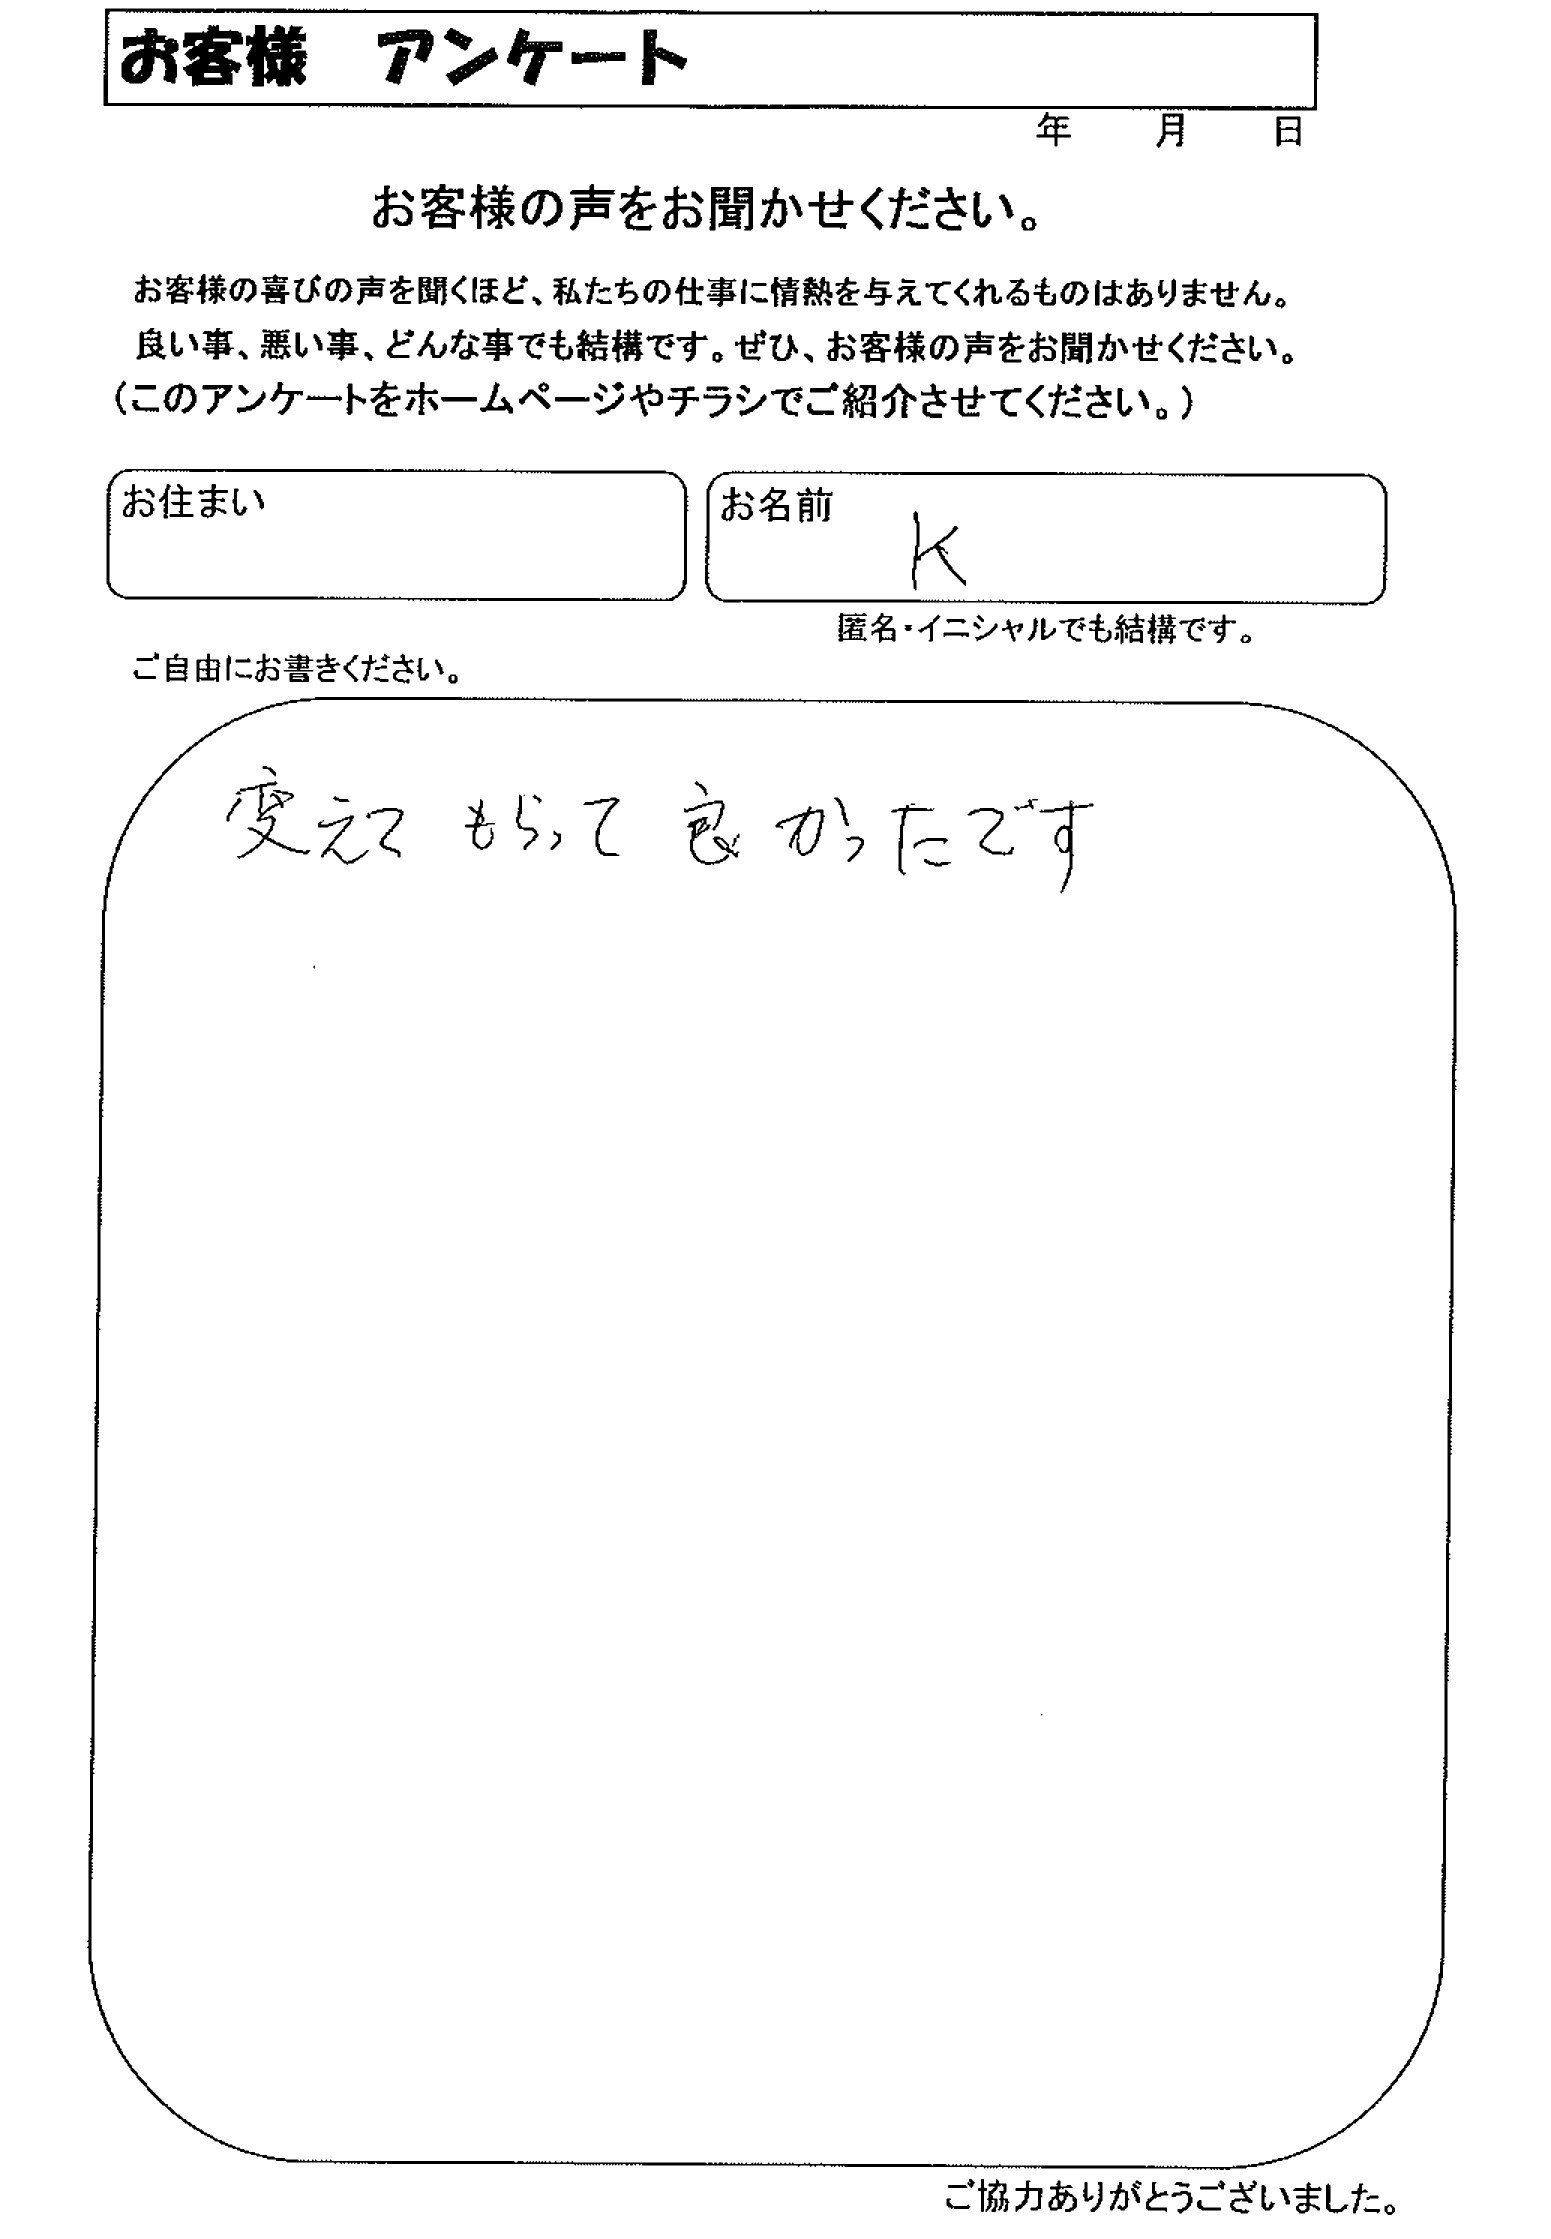 お客様　アンケート
年　月　日
お客様の声をお聞かせください。
お客様の喜びの声を聞くほど、私たちの仕事に情熱を与えてくれるものはありません。
良い事、悪い事、どんな事でも結構です。ぜひ、お客様の声をお聞かせください。
（このアンケートをホームページやチラシでご紹介させてください。）
お住まい
お名前　K
匿名・イニシャルでも結構です。
ご自由にお書きください。
変えてもらって良かったです
ご協力ありがとうございました。